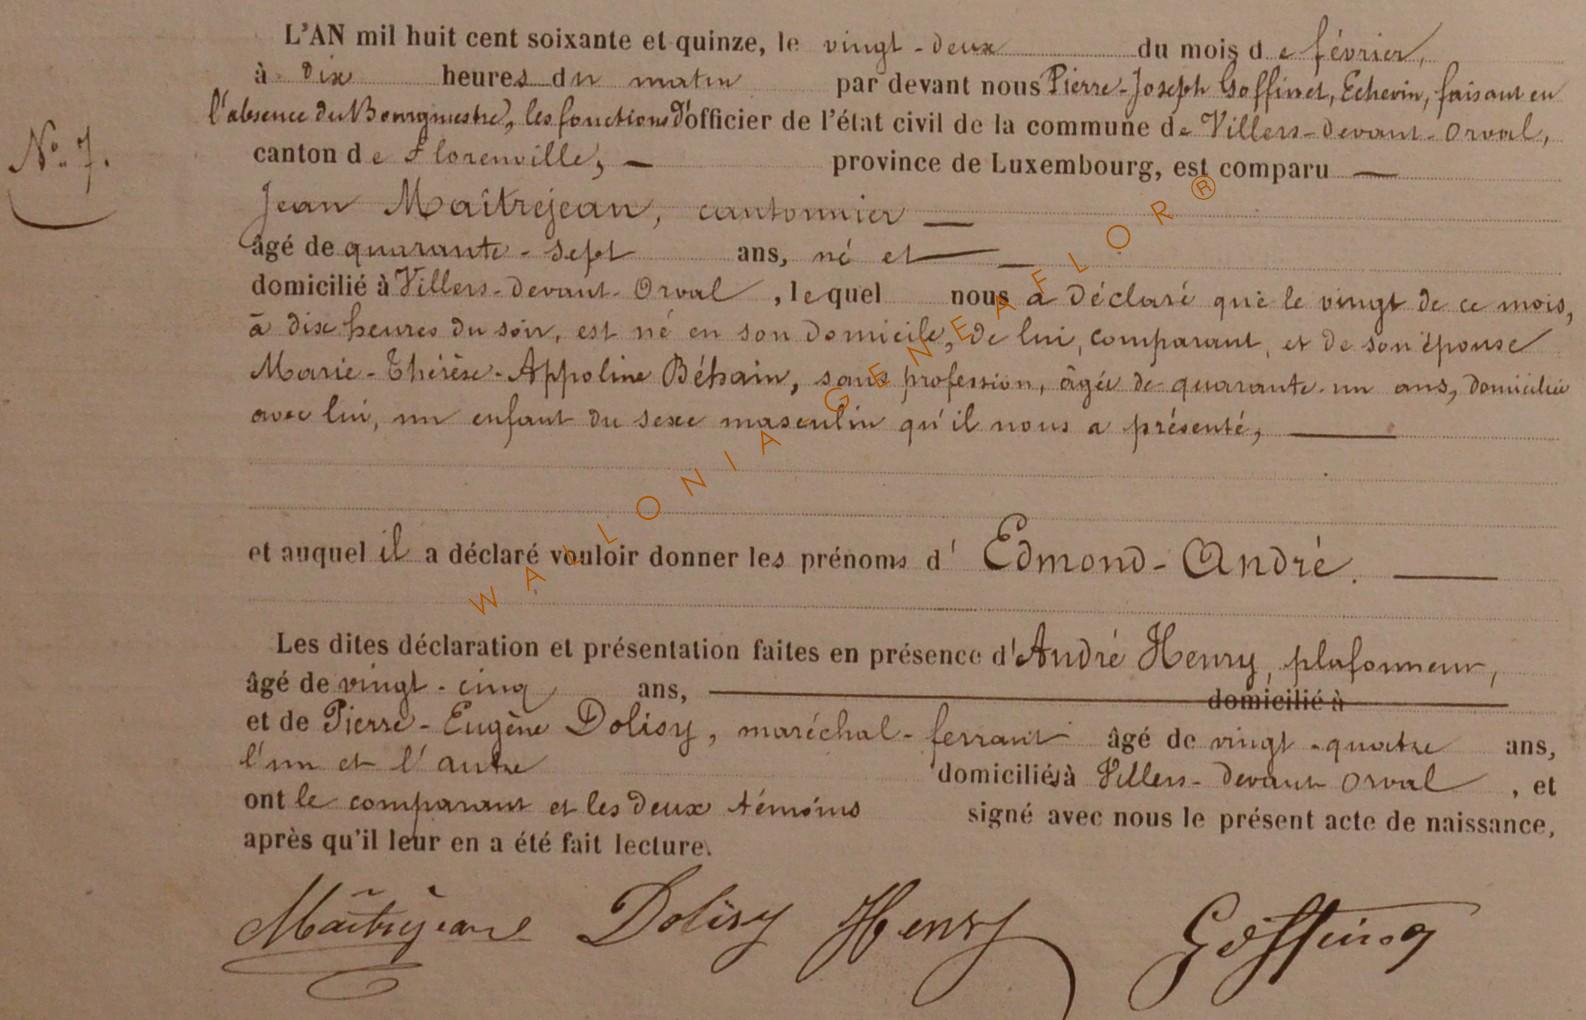 L'AN mil huit cent soixante et quinze, le vingt-deux du mois de février,
à dix heures du matin par devant nous Pierre-Joseph Goffinet, Echevin, faisant en
l'absence du Bourgmestre, les fonctions d'officier de l'état civil de la commune de Villers-devant-Orval,
N° 7.
canton de Florenville, — province de Luxembourg, est comparu —
Jean Maîtrejean, cantonnier —
âgé de quarante-sept ans, né et —
domicilié à Villers-devant-Orval, lequel nous a déclaré que le vingt de ce mois,
à dix heures du soir, est né en son domicile, de lui, comparant, et de son épouse
Marie-Thérèse-Appoline Béhain, sans profession, âgée de quarante-un ans, domiciliée
avec lui, un enfant du sexe masculin qu'il nous a présenté, —
et auquel il a déclaré vouloir donner les prénoms d'Edmond-André. —
Les dites déclaration et présentation faites en présence d'André Henry, plafonneur,
âgé de vingt-cinq ans, — domicilié à
et de Pierre-Eugène Dolisy, maréchal-ferrant âgé de vingt-quatre ans,
l'un et l'autre domiciliés à Villers-devant-Orval, et
ont le comparant et les deux témoins signé avec nous le présent acte de naissance,
après qu'il leur en a été fait lecture.
Maîtrejean Dolisy Henry Goffinet
WALLONIA GENEAFLOR®